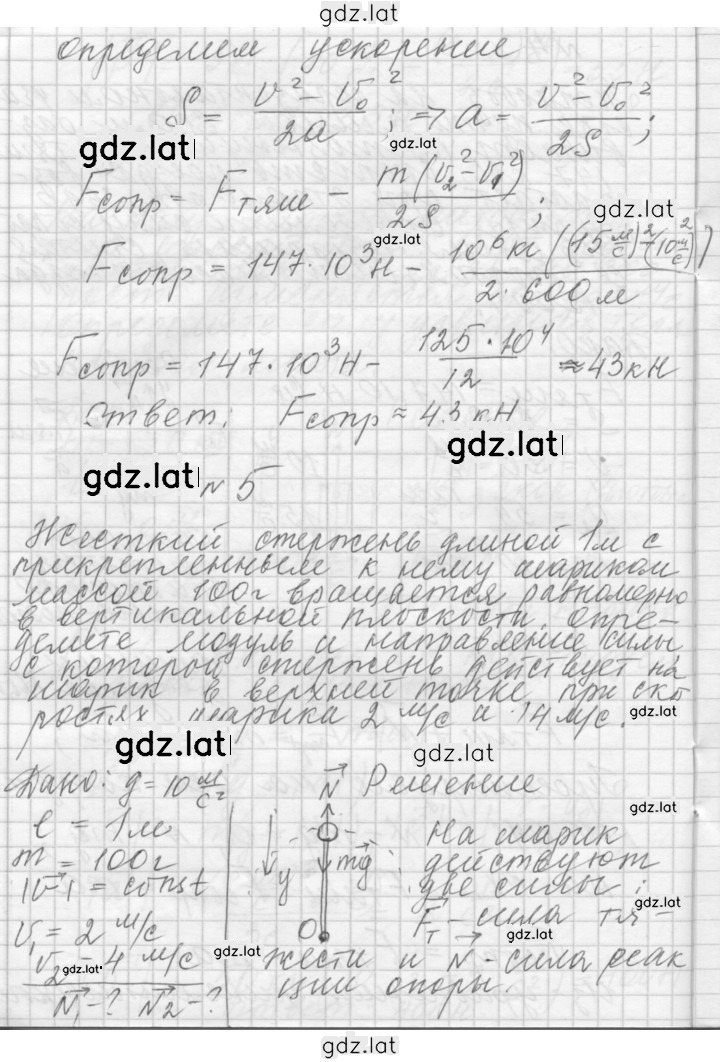 gdz.lat
определим ускорение
S = (v² - v₀²)/(2a); ⇒ a = (v² - v₀²)/(2S);
gdz.lat
gdz.lat
Fсопр = Fтяги - m(v₂² - v₁²)/(2S);
gdz.lat
gdz.lat
Fсопр = 147·10³Н - 10⁶кг((15 м/с)² - (10 м/с)²)/(2·600м)
Fсопр = 147·10³Н - 125·10⁴/12 ≈ 43кН
Ответ: Fсопр ≈ 43 кН
gdz.lat
gdz.lat
№5
Жесткий стержень длиной 1м с
прикрепленным к нему шариком
массой 100г вращается равномерно
в вертикальной плоскости. Опре-
делите модуль и направление силы
с которой стержень действует на
шарик в верхней точке при ско
ростях шарика 2 м/с и 4 м/с.
gdz.lat
gdz.lat
gdz.lat
Дано: g = 10 м/с²
N Решение
gdz.lat
l = 1м
На шарик
m = 100г
y
mg
действуют
|v| = const
две силы:
gdz.lat
O
Fт - сила тя-
v₁ = 2 м/с
gdz.lat
gdz.lat
v₂ = 4 м/с
gdz.lat
жести и N - сила реак
N₁-? N₂-?
ции опоры.
gdz.lat